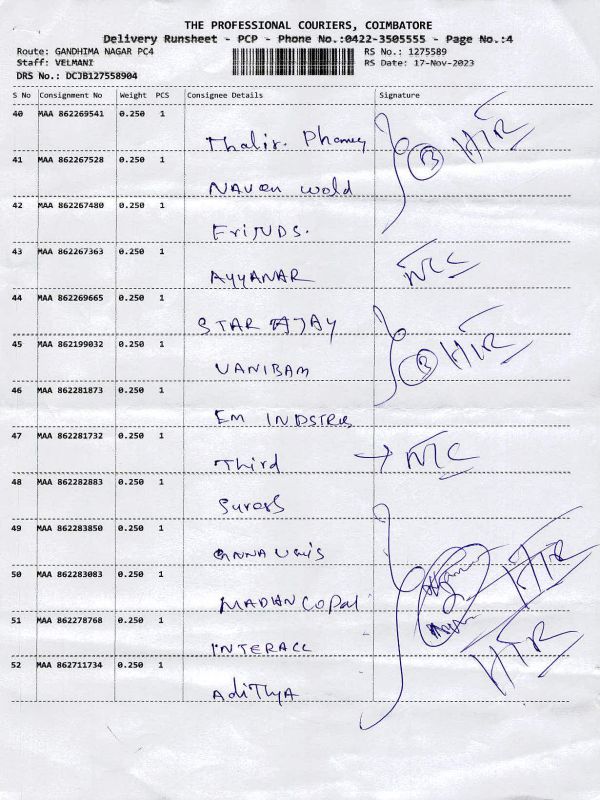 THE PROFESSIONAL COURIERS, COIMBATORE
Delivery Runsheet - PCP - Phone No.:0422-3505555 - Page No.:4
Route: GANDHIMA NAGAR PC4
RS No.: 1275589
Staff: VELMANI
RS Date: 17-Nov-2023
DRS No.: DCJB127558904
S No Consignment No Weight PCS Consignee Details Signature
40 MAA 862269541 0.250 1
Thalir.
41 MAA 862267528 0.250 1
Naveen world
42 MAA 862267480 0.250 1
43 MAA 862267363 0.250 1
AYYANAR
44 MAA 862269665 0.250 1
STAR AJAY
45 MAA 862199032 0.250 1
VANIBAM
46 MAA 862281873 0.250 1
EM INDSTRIES
47 MAA 862281732 0.250 1
Third
NTC
48 MAA 862282883 0.250 1
Suresh
49 MAA 862283850 0.250 1
50 MAA 862283083 0.250 1
MADHN GOPAL
51 MAA 862278768 0.250 1
INTERACE
52 MAA 862711734 0.250 1
AdiThYA